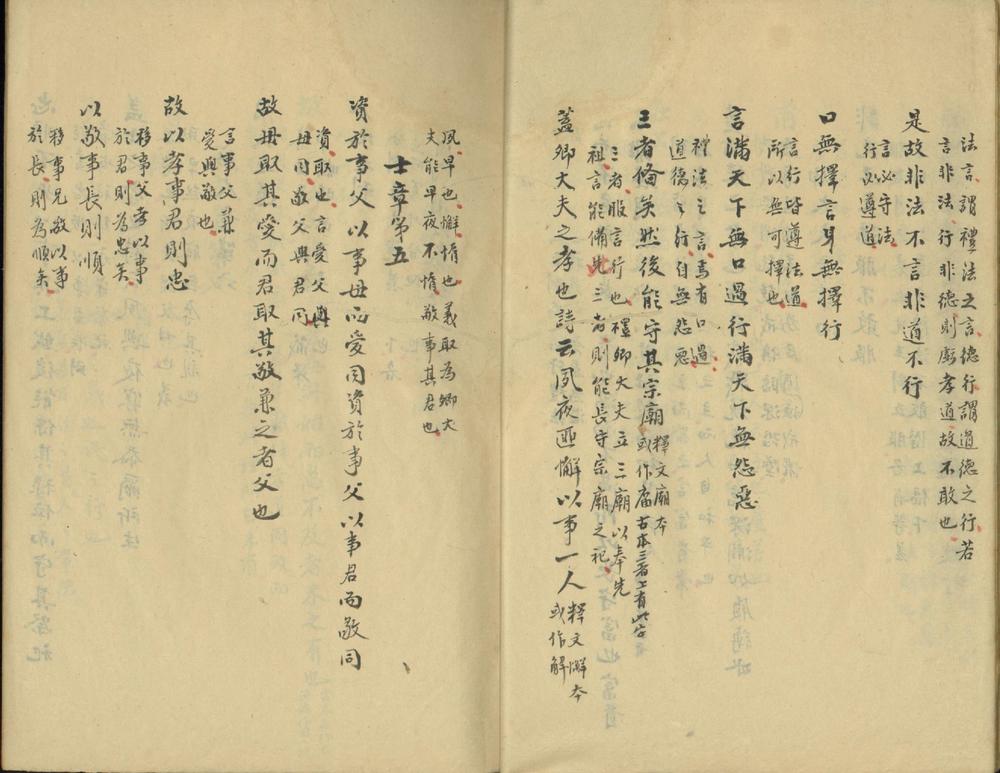 法言謂禮法之言德行謂道德之行若
言非法行非德則虧孝道故不敢也
是故非法不言非道不行
言必守法
行必遵道
口無擇言身無擇行
言行皆遵法道
所以無可擇也
言滿天下無口過行滿天下無怨惡
禮法之言焉有口過
道德之行自無怨惡
三者俻矣然後能守其宗廟
釋文廟本
或作庿
古本三者上有此字
三者服言行也禮卿大夫立三廟以奉先
祖言能備先三者則能長守宗廟之祀
蓋卿大夫之孝也詩云夙夜匪懈以事一人
釋文懈本
或作解
夙早也懈惰也義取為卿大
夫能早夜不惰敬事其君也
士章第五
資於事父以事母而愛同資於事父以事君而敬同
資取也言愛父與
母同敬父與君同
故母取其愛而君取其敬兼之者父也
言事父兼
愛與敬也
故以孝事君則忠
移事父孝以事
於君則為忠矣
以敬事長則順
移事兄敬以事
於長則為順矣